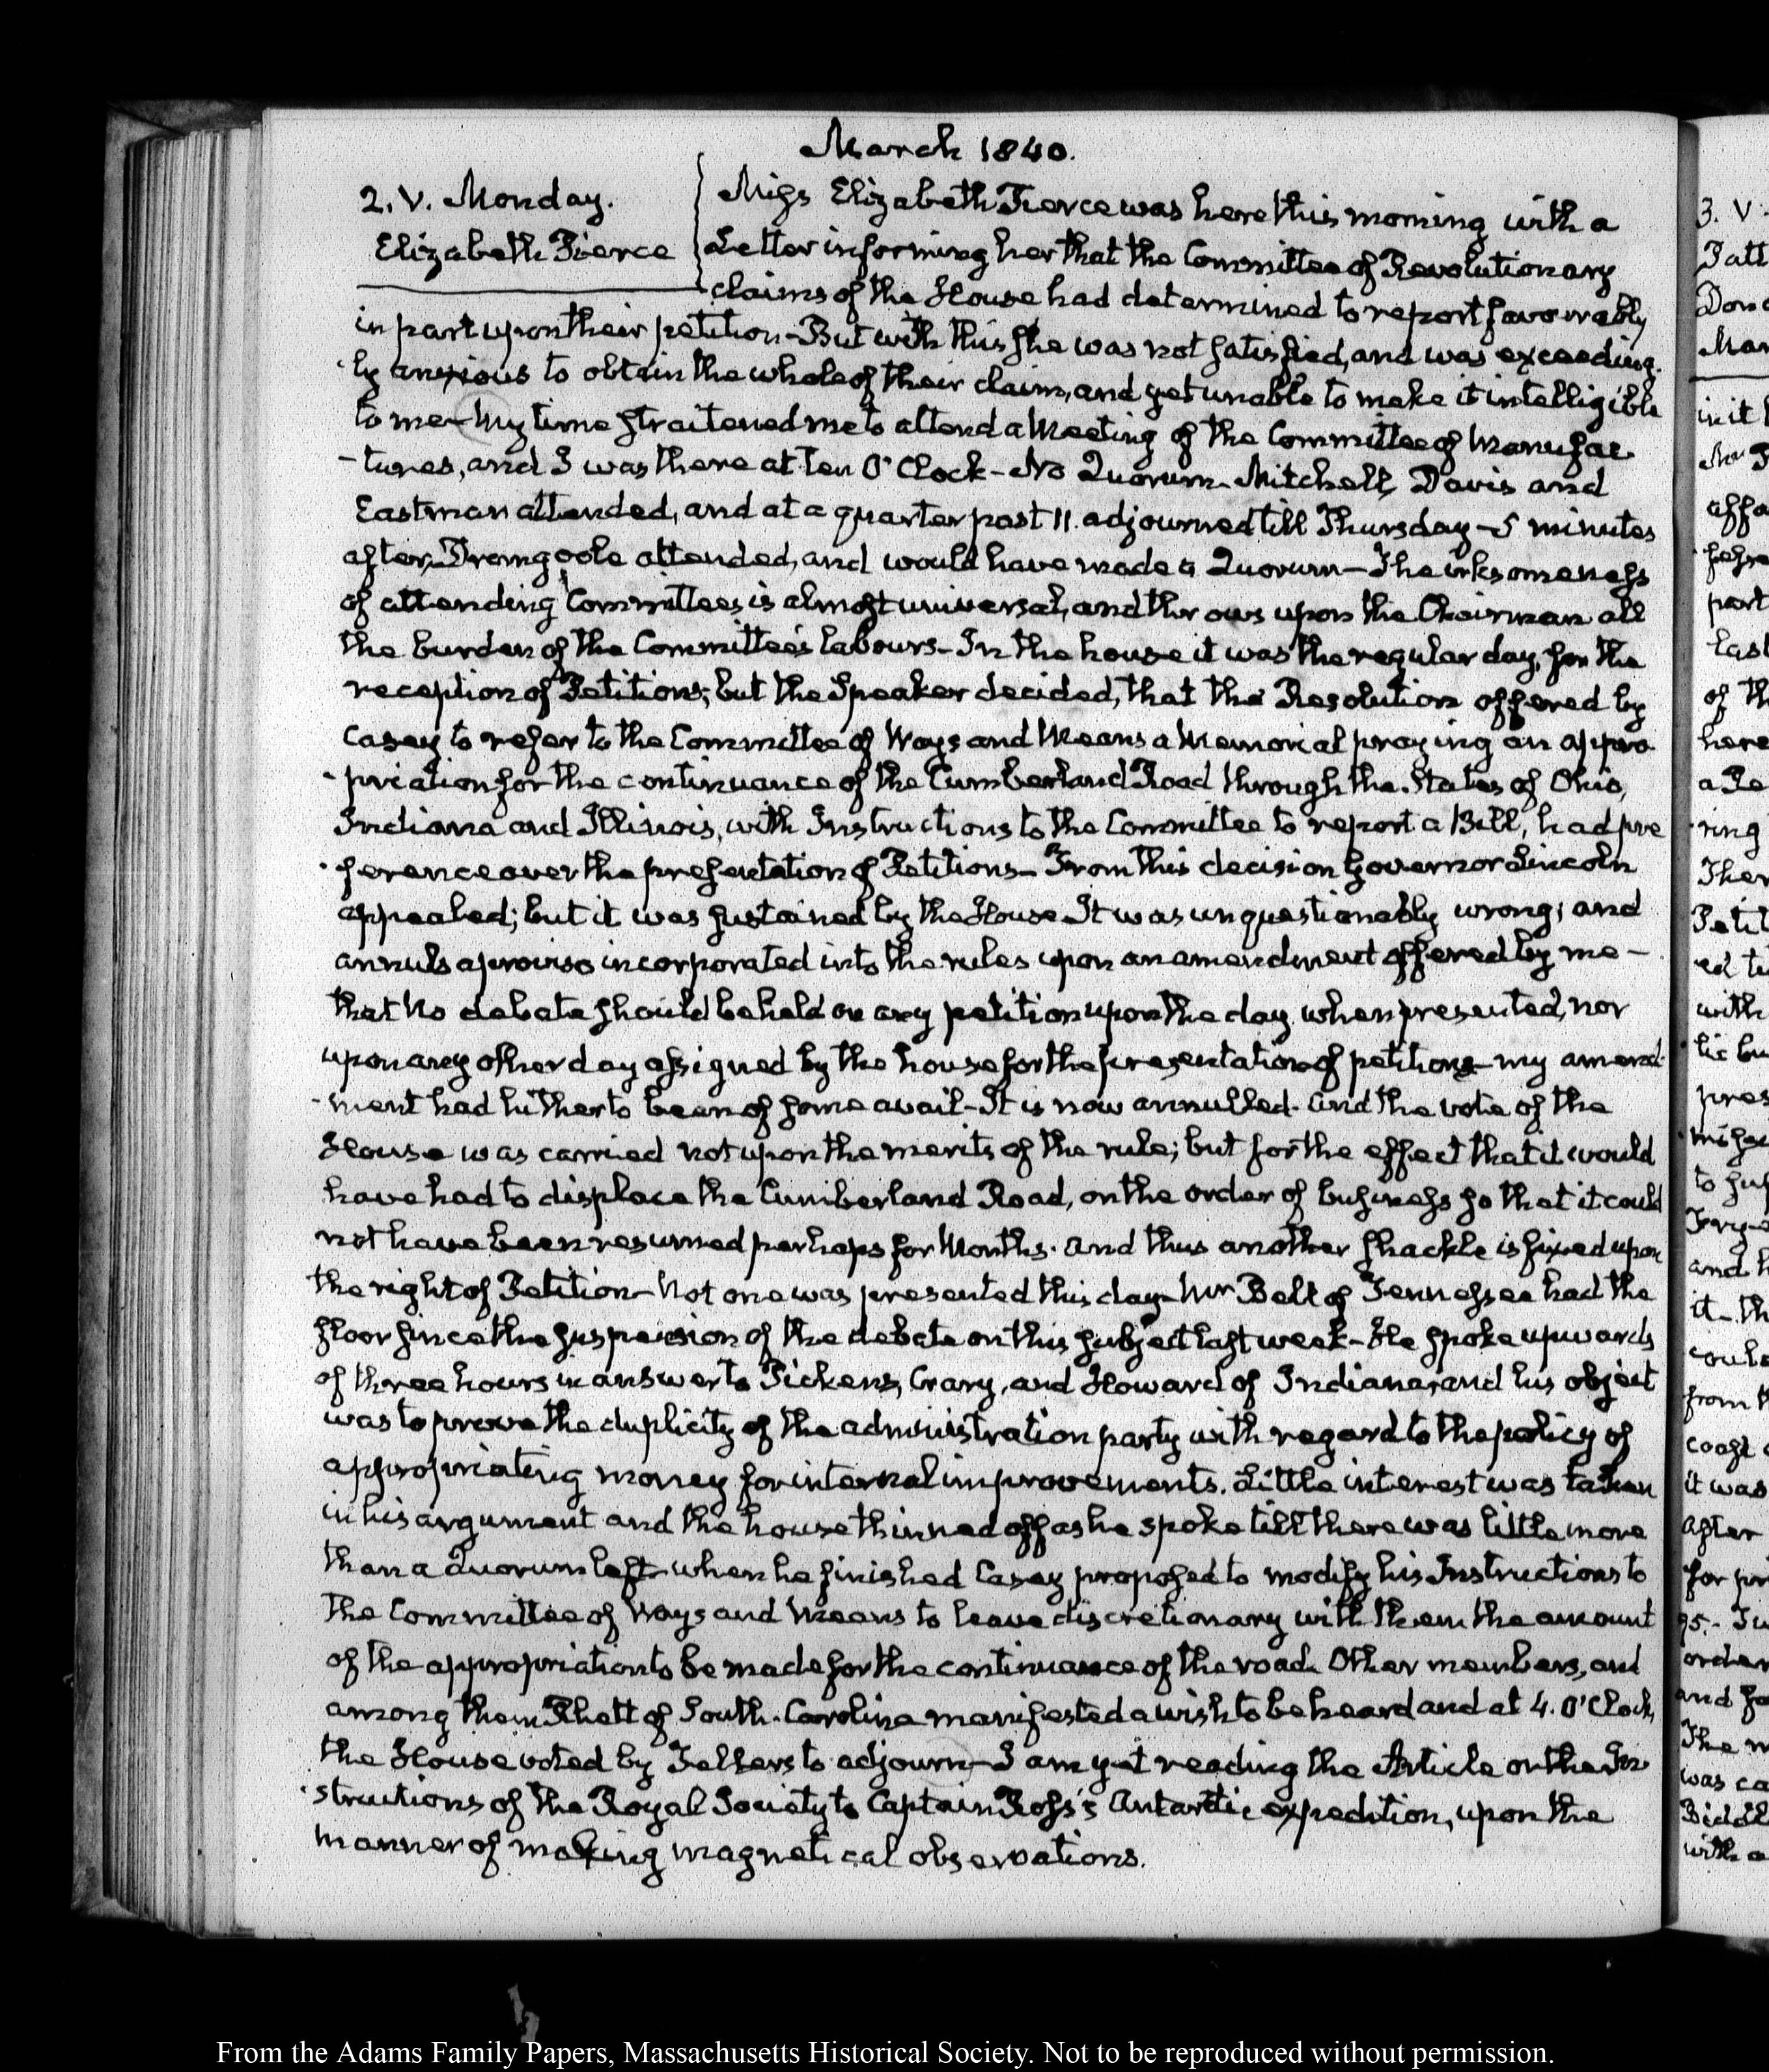 March 1840.
2. V. Monday.
Elizabeth Pierce
Miss Elizabeth Pierce was here this morning with a
Letter informing her that the Committee of Revolutionary
claims of the House had determined to report favourably
in part upon their petition—But with this she was not satisfied, and was exceeding-
-ly anxious to obtain the whole of their claim, and yet unable to make it intelligible
to me—My time straitened me to attend a Meeting of the Committee of Manufac-
-tures, and I was there at ten O'Clock—No Quorum—Mitchell, Davis and
Eastman attended, and at a quarter past 11. adjourned till Thursday—5 minutes
after, Dromgoole attended, and would have made a Quorum—The irksomeness
of attending Committees is almost universal, and throws upon the Chairman all
the burden of the Committee's labours—In the house it was the regular day, for the
reception of Petitions; but the Speaker decided, that the Resolution offered by
Casey to refer to the Committee of Ways and Means a Memorial praying an appro-
-priation for the continuance of the Cumberland Road through the States of Ohio,
Indiana and Illinois, with Instructions to the Committee to report a Bill, had pre
-ference over the presentation of Petitions—From this decision Governor Lincoln
appealed; but it was sustained by the House. It was unquestionably wrong; and
annuls a proviso incorporated into the rules upon an amendment offered by me—
that No debate should be held on any petition upon the day when presented, nor
upon any other day assigned by the house for the presentation of petitions—my amend-
-ment had hitherto been of some avail—It is now annulled. And the vote of the
House was carried not upon the merits of the rule; but for the effect that it would
have had to displace the Cumberland Road, on the order of business so that it could
not have been resumed perhaps for Months. And thus another shackle is fixed upon
the right of Petition—Not one was presented this day—Mr Bell of Tennessee had the
floor since the suspension of the debate on this subject last week—He spoke upwards
of three hours in answer to Pickens, Crary, and Howard of Indiana; and his object
was to prove the duplicity of the administration party with regard to the policy of
appropriating money for internal improvements. Little interest was taken
in his argument and the house thinned off as he spoke till there was little more
than a Quorum left—when he finished Casey proposed to modify his Instructions to
the Committee of Ways and Means to leave discretionary with them the amount
of the appropriation to be made for the continuance of the road. Other members, and
among them Rhett of South-Carolina manifested a wish to be heard and at 4. O'Clock,
the House voted by Tellers to adjourn—I am yet reading the Article on the In
-structions of the Royal Society to Captain Ross's Antartic expedition, upon the
manner of making magnetical observations.
3. V
in it
part
of th
here
ring
Ther
with
pres
and h
from th
it was
After
for pr
The m
was ca
with a
From the Adams Family Papers, Massachusetts Historical Society. Not to be reproduced without permission.